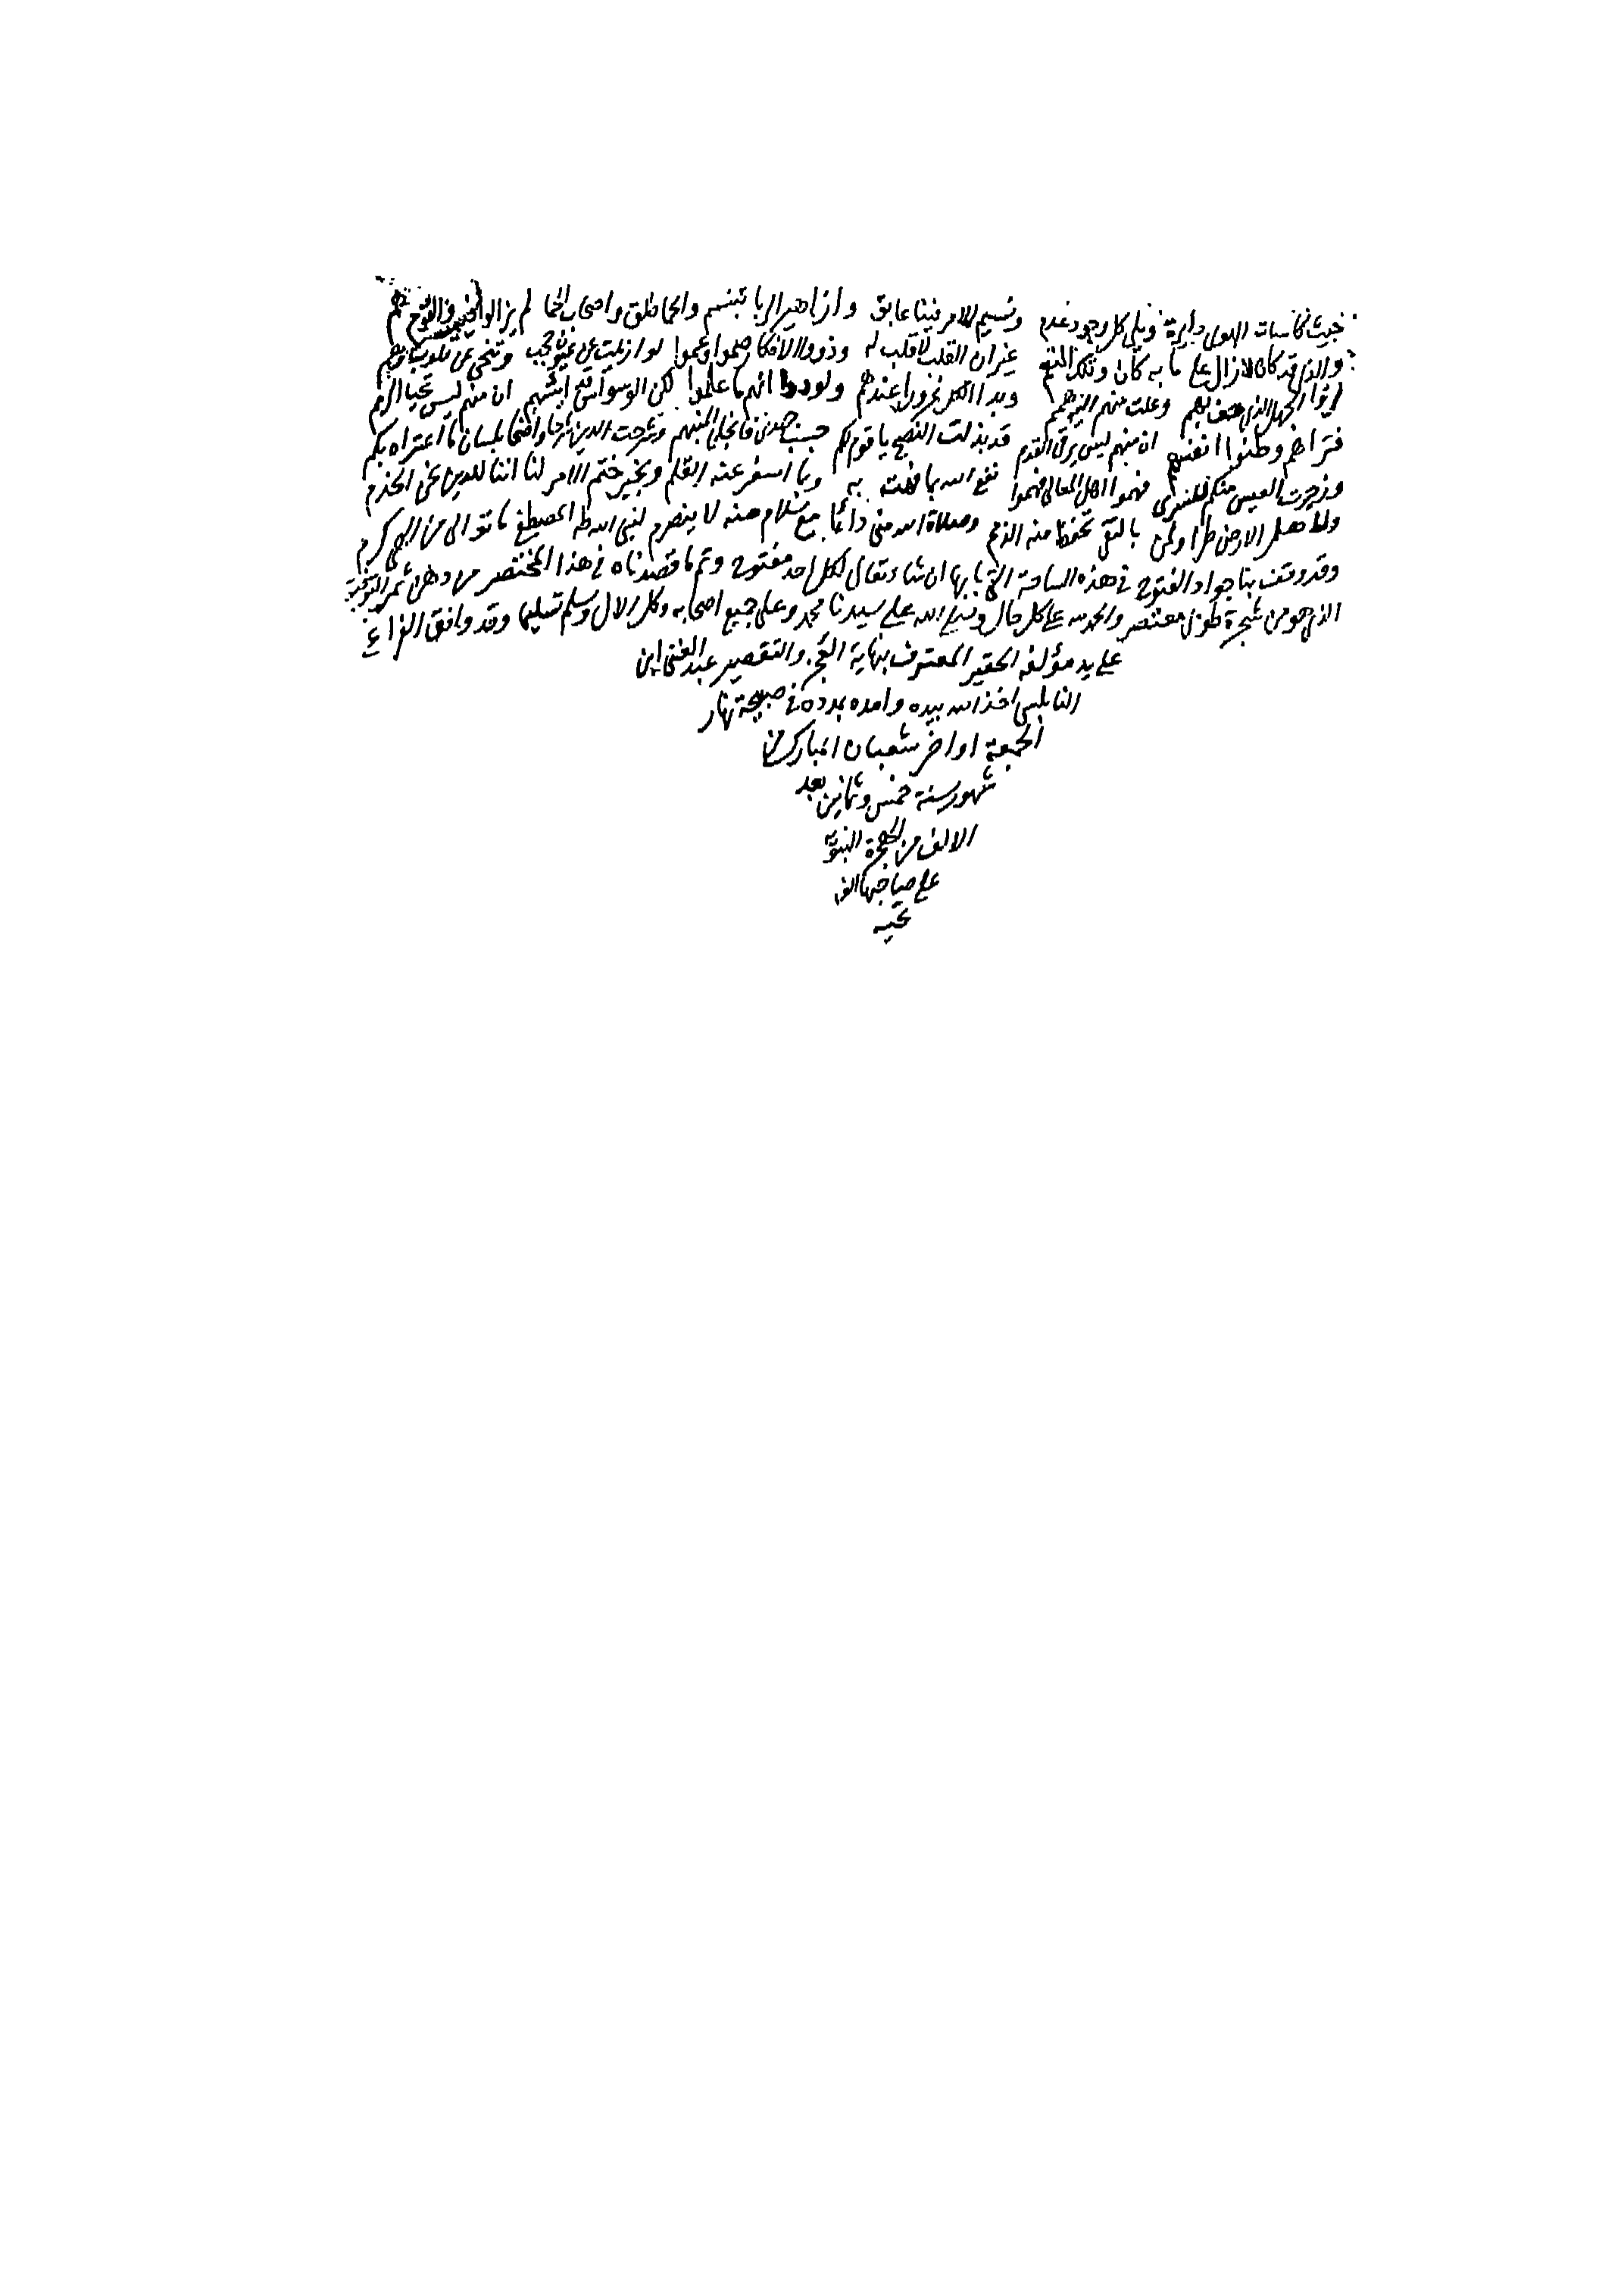 حيث كاسات الهوى دايرة وعلى كل وجود عدم ونسيم الامر فينا عابق وازاهير الربا تبتسم والحما طلق واصحاب الحما لم يزالوا والقوم هم
والذي قد كان لازال على ما به كان وتلك النعم غير ان القلب لا قلب له وذووا الافكار صموا وعموا لو ازيلت عن عيون حجب وتنحى عن قلوب
الجهل الذي حف بهم وعلت منهم اليه همم وبدا الكل غرورا عندهم ولودوا انهم ما علموا لكن الوسواس في انفسهم ان منهم ليس تحيا الرمم
فتراهم وطنوا انفسهم ان منهم ليس يرقى القدم قد بذلت النصح يا قوم لكم حسب جهدي فانجلى المبهم وشرحت الدين شرحا واضحا بلسان ما اعتراه بكم
وزجرت العيس منكم للسرى فهموا اهل المعالي فهموا نفع الله بما فهت به وبما اسفر عنه القلم وبخير ختم الامر لنا اننا للدين نحن الخدم
ولاهل الارض طرا ولمن بالتقى تحفظ منه الذمم وصلاة الله مني دائما مع سلام منه لا ينصرم لنبي الله طه المصطفى ما توالى من الهي كرم
وقد وقف بنا جواد الفتوح في هذه الساحة التي بابها ان شاء تعالى لكل احد مفتوح وتم ما قصدناه في هذا المختصر من دهن ثمر التوفيق
الذي هو من شجرة طوبى معتصر والحمد لله على كل حال وصلى الله على سيدنا محمد وعلى جميع اصحابه وكل الال وسلم تسليما وقد وافق الفراغ
على يد مؤلفه الحقير المعترف بنهاية العجز والتقصير عبد الغني ابن
النابلسي اخذ الله بيده وامده بمدده في صبيحة نهار
الجمعة اواخر شعبان المبارك من
شهور سنة خمس وثمانين بعد
الالف من الهجرة النبوية
على صاحبها الف
تحيه